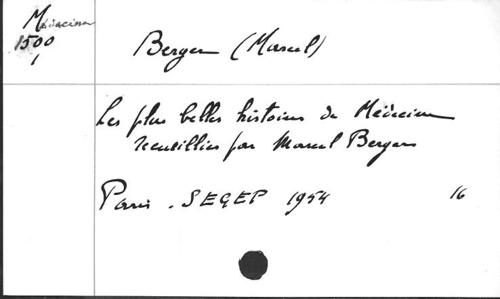 Médecine
1500
1
Berger (Marcel)
Les plus belles histoires de Médecine
recueillies par Marcel Berger
Paris . SEGEP 1954 16